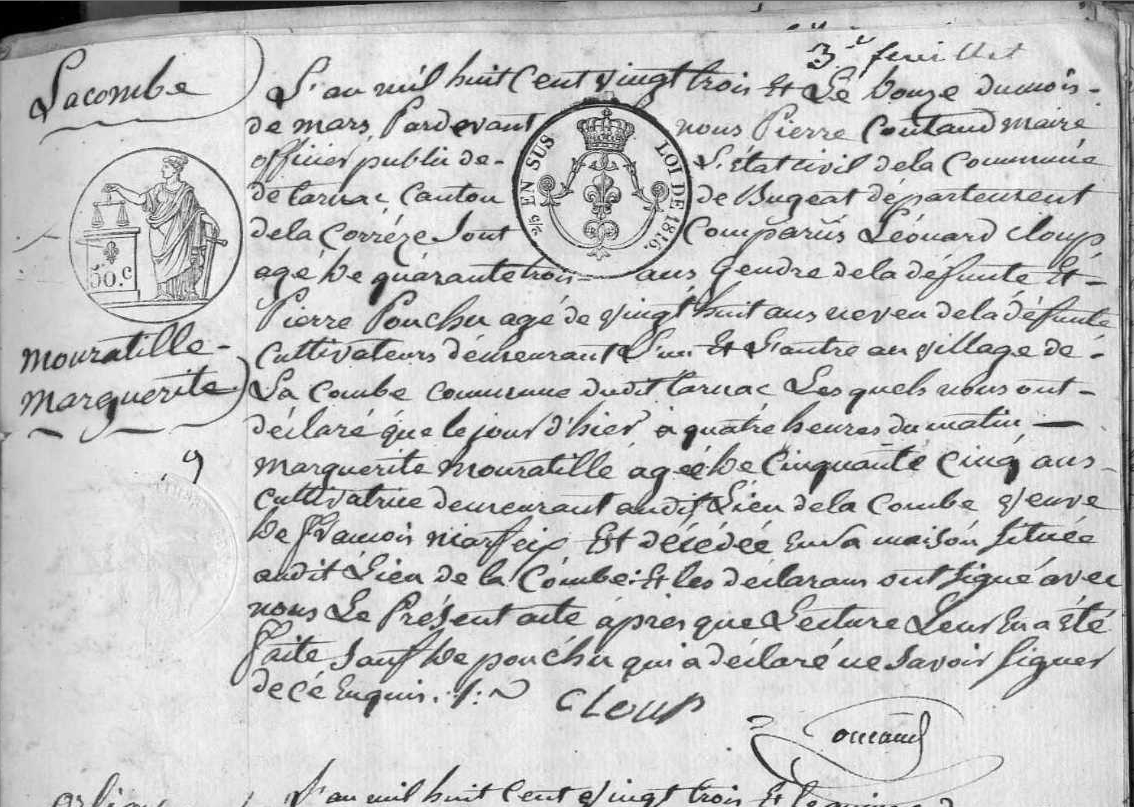 3e feuillet
Lacombe
L'an mil huit Cent vingt trois Et Le douze du mois -
de mars, Pardevant nous Pierre Coutaud maire
officier public de - L'état civil de la Commune
de tarnac Canton de Bugeat département
de la Corrèze Sont Comparüs Léonard Cloup
agé de quarante trois - ans Gendre de la défunte Et -
Pierre Pouchu agé de vingt huit ans neveu de la défunte
Cultivateurs demeurant L'un Et L'autre au village de -
La Combe commune dudit tarnac Les quels nous ont -
déclaré que le jour d'hier à quatre heures du matin —
Marguerite Mouratille agéé de Cinquante Cinq ans -
Cultivatrice demeurant audit Lieu de la Combe veuve
de François Est décédée En Sa maison Située
audit Lieu de la Combe : Et les déclarans ont Signé avec
nous Le Présent acte après que Lecture Leur En a Eté
faite Sauf Le pouchu qui a déclaré ne Savoir Signer
de Ce Enquis.
EN SUS
LOI DE 1816.
50.C
Mouratille -
Marguerite
9
CLOUP
Coutaud
L'an mil huit Cent vingt trois Et le